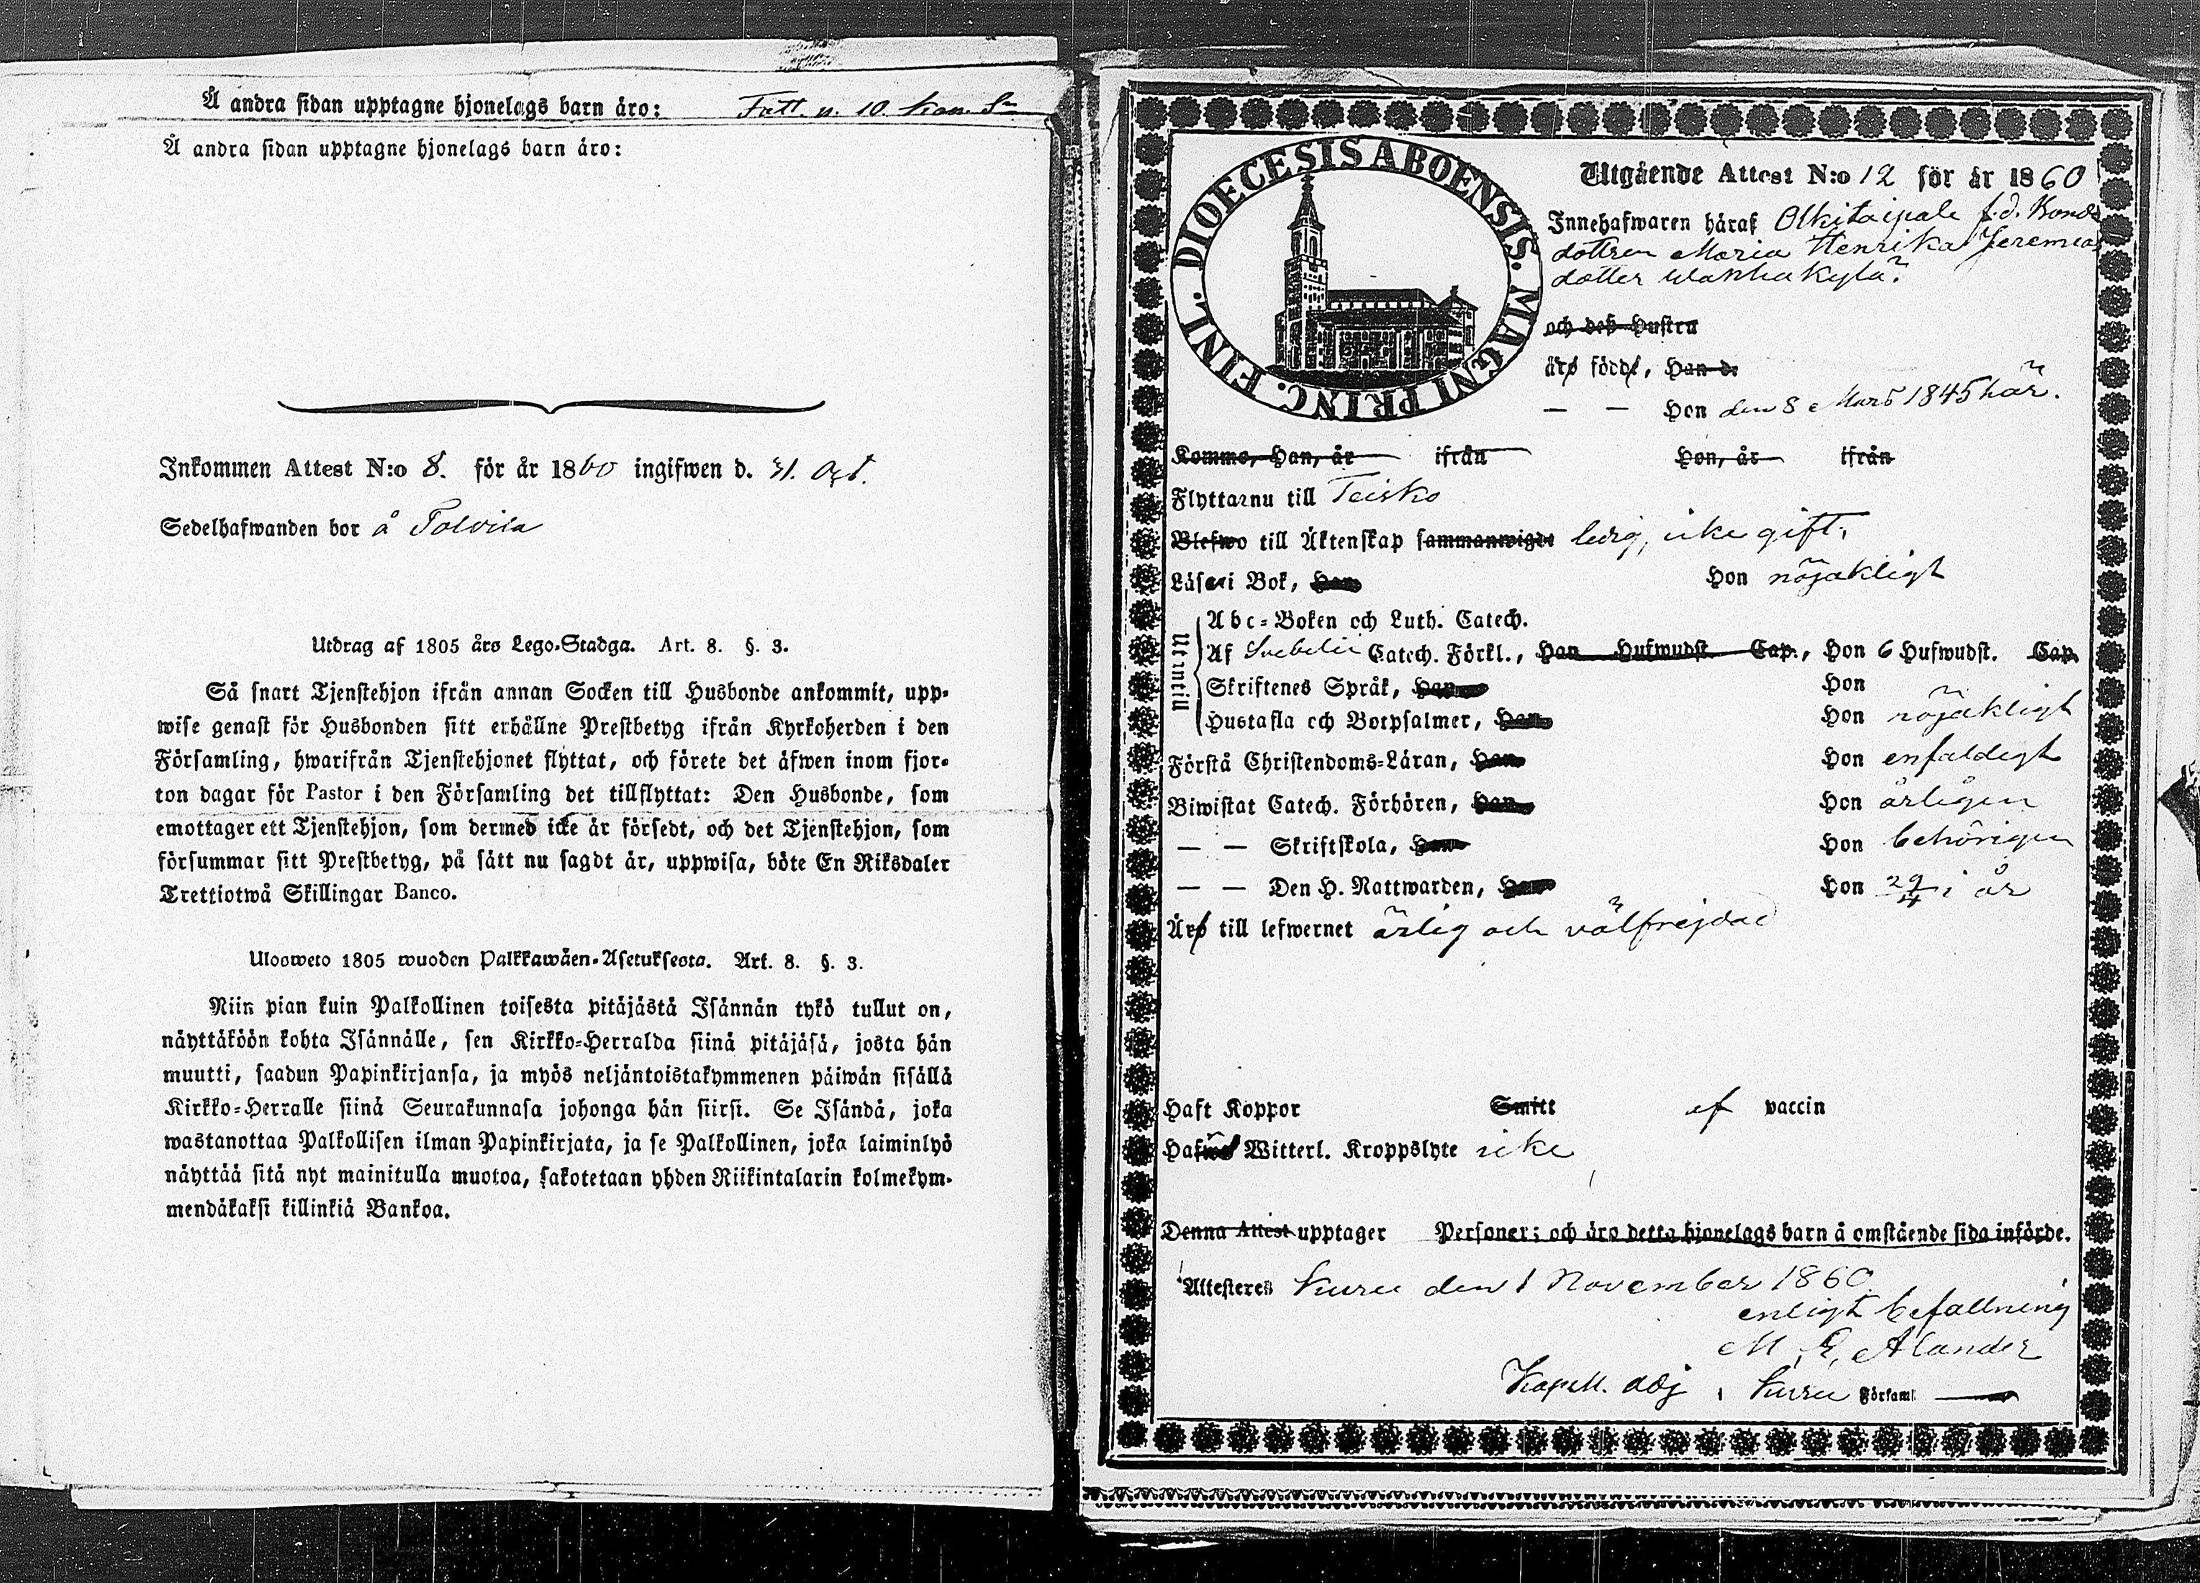 Å andra sidan upptagne hjonelags barn äro: Fatt. n. 10.
Å andra sidan upptagne hjonelags barn äro:
Inkommen Attest N:o 8. för år 1860 ingifwen d. 31. Oct.
Sedelhafwanden bor å Polvila
Utdrag af 1805 års Lego-Stadga. Art. 8. §. 3.
Så snart Tjenstehjon ifrån annan Socken till Husbonde ankommit, upp-
wise genast för Husbonden sitt erhållne Prestbetyg ifrån Kyrkoherden i den
Församling, hwarifrån Tjenstehjonet flyttat, och förete det äfwen inom fjor-
ton dagar för Pastor i den Församling det tillflyttat: Den Husbonde, som
emottager ett Tjenstehjon, som dermed icke är försedt, och det Tjenstehjon, som
försummar sitt Prestbetyg, på sätt nu sagdt är, uppwisa, böte En Riksdaler
Trettiotwå Skillingar Banco.
Ulosweto 1805 wuoden Palkkawäen-Asetuksesta. Art. 8. §. 3.
Niin pian kuin Palkollinen toisesta pitäjästä Isännän tykö tullut on,
näyttäköön kohta Isännälle, sen Kirkko-Herralda siinä pitäjäsä, josta hän
muutti, saadun Papinkirjansa, ja myös neljäntoistakymmenen päiwän sisällä
Kirkko-Herralle siinä Seurakunnasa johonga hän siirsi. Se Isändä, joka
wastanottaa Palkollisen ilman Papinkirjata, ja se Palkollinen, joka laiminlyö
näyttää sitä nyt mainitulla muotoa, sakotetaan yhden Riikintalarin kolmekym-
mendäkaksi killinkiä Bankoa.
DIOECESIS ABOENSIS. MAGNI PRINC. FINL.
Utgående Attest N:o 12 för år 1860
Innehafwaren häraf Olkitaipale f.d. Bonde
dottren Maria Henrika Jeremias
dotter Wanhakylä.
och deß Hustru
äro födde, Han d.
— — Hon den 8 Mars 1845 här.
Komme, Han, år ifrån Hon, år ifrån
Flytta nu till Teisko
Blefwo till Äktenskap sammanwigde ledig, icke gift.
Läser i Bok, Han Hon nöjaktligt
Utantill
Abc-Boken och Luth. Catech.
Af Svebelii Catech. Förkl., Han Hufwudst. Cap., Hon 6 Hufwudst. Cap.
Skriftenes Språk, Han Hon
Hustafla och Botpsalmer, Han Hon nöjaktligt
Förstå Christendoms-Läran, Han Hon enfaldigt
Biwistat Catech. Förhören, Han Hon årligen
— — Skriftskola, Han Hon behörigen
— — Den H. Nattwarden, Han Hon 29/4 i år
Äro till lefwernet ärlig och välfrejdad
Haft Koppor Smitt af vaccin
Hafwa Witterl. Kroppslyte icke
Denna Attest upptager Personer; och äro detta hjonelags barn å omstående sida införde.
Attesteres Kuru den 1 November 1860.
enligt befallning
M. E. Alander
Kapell. adj. i Kuru Församl.